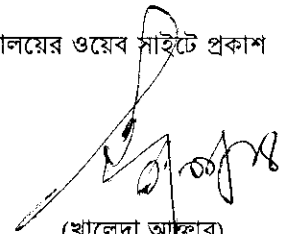 ালয়ের ওয়েব সাইটে প্রকাশ
(খালেদা আক্তার)